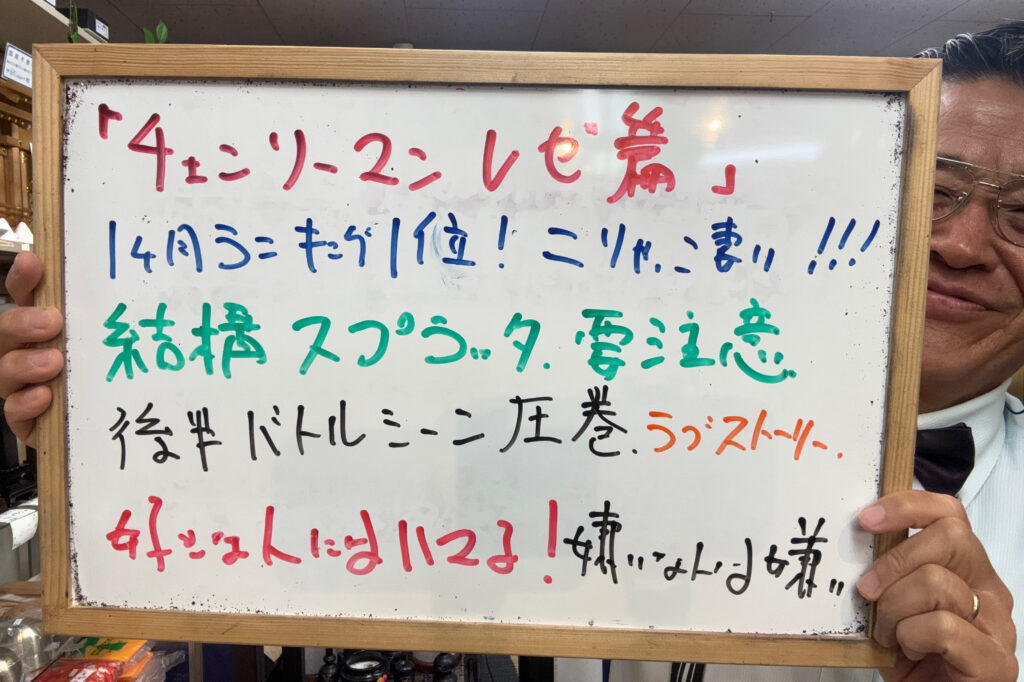 「チェンソーマン レゼ篇」
14周ランキング1位!こりゃ、凄い!!!
結構スプラッタ.要注意
後半バトルシーン圧巻.ラブストーリー.
好きな人にはハマる!嫌いな人は嫌い